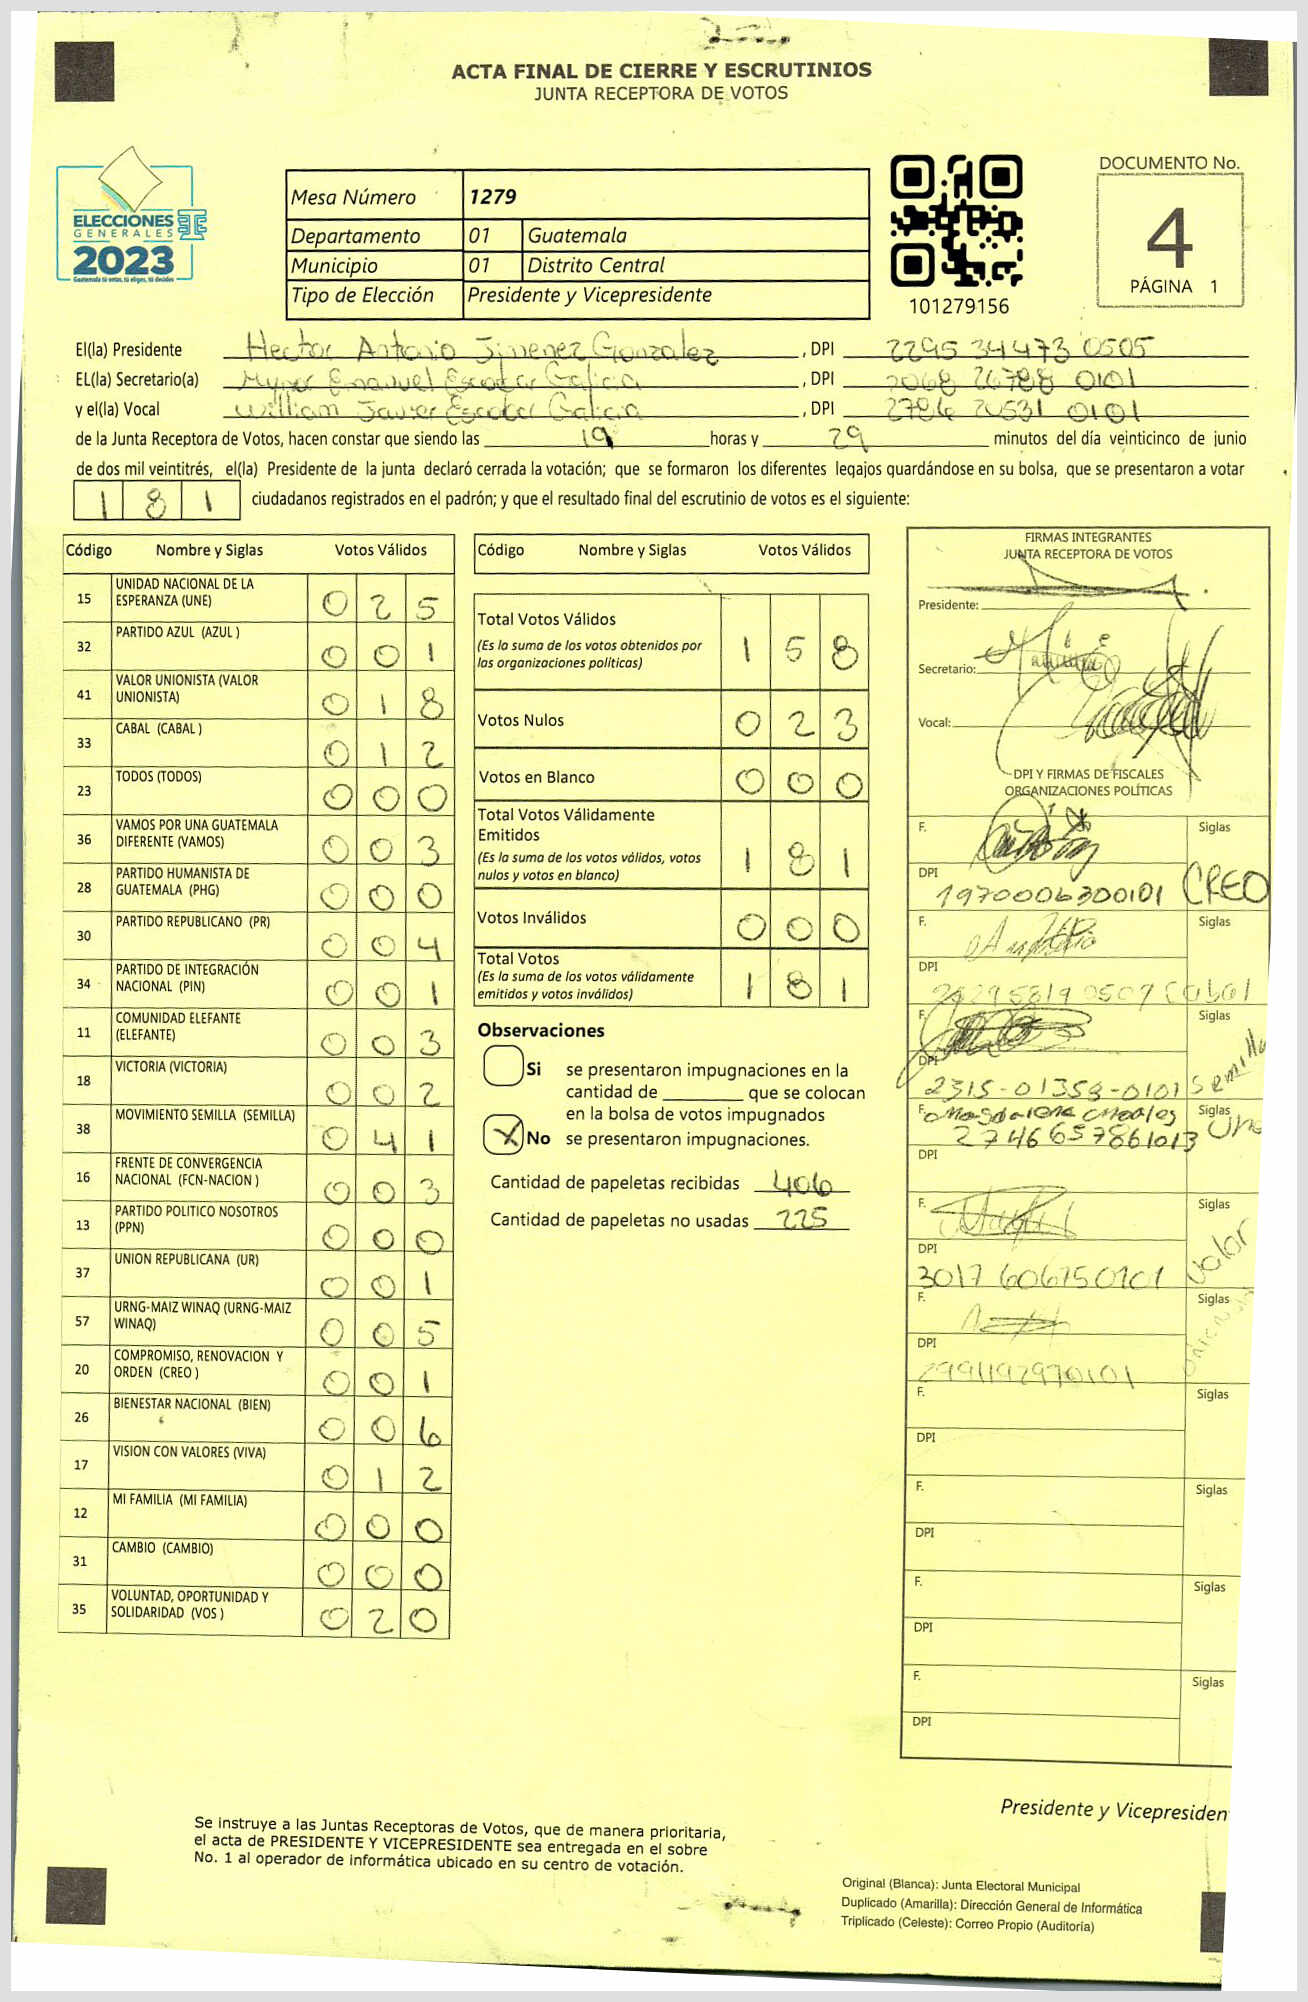 ACTA FINAL DE CIERRE Y ESCRUTINIOS
JUNTA RECEPTORA DE VOTOS
ELECCIONES
GENERALES
2023
Guatemala tú votas, tú eliges, tú decides
Mesa Número 1279
Departamento 01 Guatemala
Municipio 01 Distrito Central
Tipo de Elección Presidente y Vicepresidente
101279156
DOCUMENTO No.
4
PÁGINA 1
El(la) Presidente Hector Antonio Jimenez Gonzalez, DPI 2295 34473 0505
EL(la) Secretario(a) Mynor Emanuel Escobar Galicia, DPI 2068 26788 0101
y el(la) Vocal William Javier Escobar Galicia, DPI 2786 20531 0101
de la Junta Receptora de Votos, hacen constar que siendo las 19 horas y 29 minutos del día veinticinco de junio
de dos mil veintitrés, el(la) Presidente de la junta declaró cerrada la votación; que se formaron los diferentes legajos guardándose en su bolsa, que se presentaron a votar
181 ciudadanos registrados en el padrón; y que el resultado final del escrutinio de votos es el siguiente:
Código Nombre y Siglas Votos Válidos
15 UNIDAD NACIONAL DE LA ESPERANZA (UNE) 0 2 5
32 PARTIDO AZUL (AZUL ) 0 0 1
41 VALOR UNIONISTA (VALOR UNIONISTA) 0 1 8
33 CABAL (CABAL ) 0 1 2
23 TODOS (TODOS) 0 0 0
36 VAMOS POR UNA GUATEMALA DIFERENTE (VAMOS) 0 0 3
28 PARTIDO HUMANISTA DE GUATEMALA (PHG) 0 0 0
30 PARTIDO REPUBLICANO (PR) 0 0 4
34 PARTIDO DE INTEGRACIÓN NACIONAL (PIN) 0 0 1
11 COMUNIDAD ELEFANTE (ELEFANTE) 0 0 3
18 VICTORIA (VICTORIA) 0 0 2
38 MOVIMIENTO SEMILLA (SEMILLA) 0 4 1
16 FRENTE DE CONVERGENCIA NACIONAL (FCN-NACION ) 0 0 3
13 PARTIDO POLITICO NOSOTROS (PPN) 0 0 0
37 UNION REPUBLICANA (UR) 0 0 1
57 URNG-MAIZ WINAQ (URNG-MAIZ WINAQ) 0 0 5
20 COMPROMISO, RENOVACION Y ORDEN (CREO ) 0 0 1
26 BIENESTAR NACIONAL (BIEN) 0 0 6
17 VISION CON VALORES (VIVA) 0 1 2
12 MI FAMILIA (MI FAMILIA) 0 0 0
31 CAMBIO (CAMBIO) 0 0 0
35 VOLUNTAD, OPORTUNIDAD Y SOLIDARIDAD (VOS ) 0 2 0
Código Nombre y Siglas Votos Válidos
Total Votos Válidos 1 5 8
(Es la suma de los votos obtenidos por
las organizaciones políticas)
Votos Nulos 0 2 3
Votos en Blanco 0 0 0
Total Votos Válidamente
Emitidos 1 8 1
(Es la suma de los votos válidos, votos
nulos y votos en blanco)
Votos Inválidos 0 0 0
Total Votos 1 8 1
(Es la suma de los votos válidamente
emitidos y votos inválidos)
Observaciones
Si se presentaron impugnaciones en la
cantidad de ________ que se colocan
en la bolsa de votos impugnados
X No se presentaron impugnaciones.
Cantidad de papeletas recibidas 406
Cantidad de papeletas no usadas 225
FIRMAS INTEGRANTES
JUNTA RECEPTORA DE VOTOS
Presidente:
Secretario:
Vocal:
DPI Y FIRMAS DE FISCALES
ORGANIZACIONES POLÍTICAS
F. Siglas
DPI 1970006300101 CREO
F. Siglas
DPI Cabal
F. Siglas
DPI 2315-01353-0101 Semilla
F. Magdalena Morales Siglas
2746657861013 Une
DPI
F. Siglas
DPI
3017 606750101 Valor
F. Siglas
DPI
2991192970101
F. Siglas
DPI
F. Siglas
DPI
F. Siglas
DPI
F. Siglas
DPI
Presidente y Vicepresiden
Se instruye a las Juntas Receptoras de Votos, que de manera prioritaria,
el acta de PRESIDENTE Y VICEPRESIDENTE sea entregada en el sobre
No. 1 al operador de informática ubicado en su centro de votación.
Original (Blanca): Junta Electoral Municipal
Duplicado (Amarilla): Dirección General de Informática
Triplicado (Celeste): Correo Propio (Auditoría)